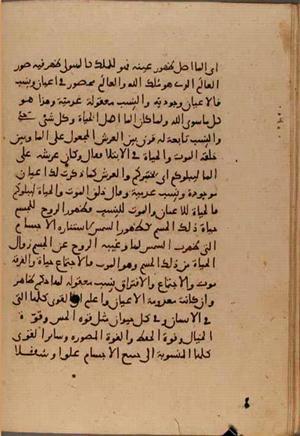 اى الما اصل ظهور عينه فهو للملك كالهيولى ظهر فيه صور
العالم الذى هو ملك الله والعالم محصور فى اعيان ونسب
فالاعيان وجودية والنسب معقولة عدمية وهذا هو
كل ما سوى الله ولما كان الما اصل الحياة وكل شى حى
والنسب تابعة له قرن بين العرش المجعول على الما وبين
خلقه الموت والحياة فى الابتلا فقال وكان عرشه على
الما ليبلوكم اى يختبركم والعرش كما ذكرت لك اعيان
موجودة ونسب عدمية وقال خلق الموت والحياة ليبلوكم
فالحياة للاعيان والموت للنسب فظهور الروح للجسم
حياة ذلك الجسم كظهور الشمس لاستنارة الاجسام
التى ظهرت الشمس لها وغيبة الروح عن الجسم زوال
الحياة من ذلك الجسم وهو الموت فالاجتماع حياة والفرقة
موت والاجتماع والافتراق نسب معقولة لها حكم ظاهر
وان كانت معدومة الاعيان واعلم ان القوى كلها التى
فى الانسان وفى كل حيوان مثل قوة الحس وقوة
الخيال وقوة الحفظ والقوة المصورة وساير القوى
كلها المنسوبة الى جميع الاجسام علوا وسفلا